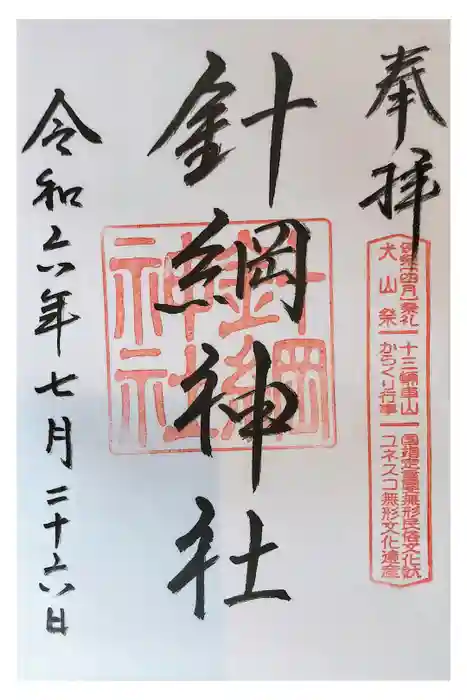 奉拝
犬山祭
十三輌車山
からくり行事
国指定重要無形民俗文化財
ユネスコ無形文化遺産
針綱神社
針綱神社
令和六年七月二十六日